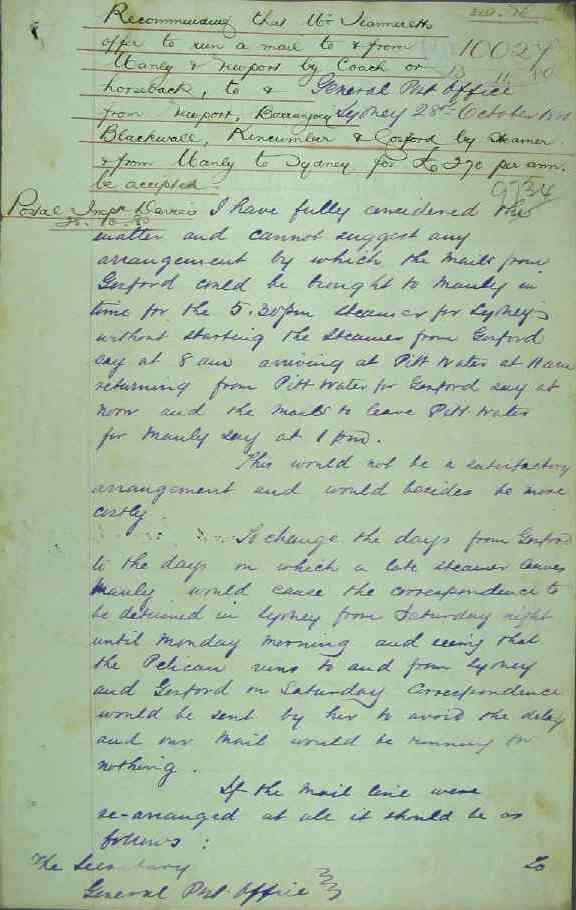 Recommending that Mr Jeannerett's
offer to run a mail to & from
Manly & Newport by Coach or
horseback, to &
from Newport, Barranjoey
Blackwall, Kincumber & Gosford by Steamer
& from Manly to Sydney for £270 per ann.
be accepted
10027
General Post Office
Sydney 28th October
9734
Postal Inspr Davies
I have fully considered the
matter and cannot suggest any
arrangement by which the mails from
Gosford could be brought to Manly in
time for the 5.30pm steamer for Sydney
without starting the steamer from Gosford
say at 8 am arriving at Pitt Water at 11 am
returning from Pitt Water for Gosford say at
noon and the mails to leave Pitt Water
for Manly say at 1 pm.
This would not be a satisfactory
arrangement and would besides be more
costly
To change the days from Gosford
to the days on which a late steamer leaves
Manly would cause the correspondence to
be detained in Sydney from Saturday night
until Monday morning and seeing that
the Pelican runs to and from Sydney
and Gosford on Saturday Correspondence
would be sent by her to avoid the delay
and our mail would be running for
nothing.
If the mail line were
re-arranged at all it should be as
follows:
The Secretary
General Post Office
To